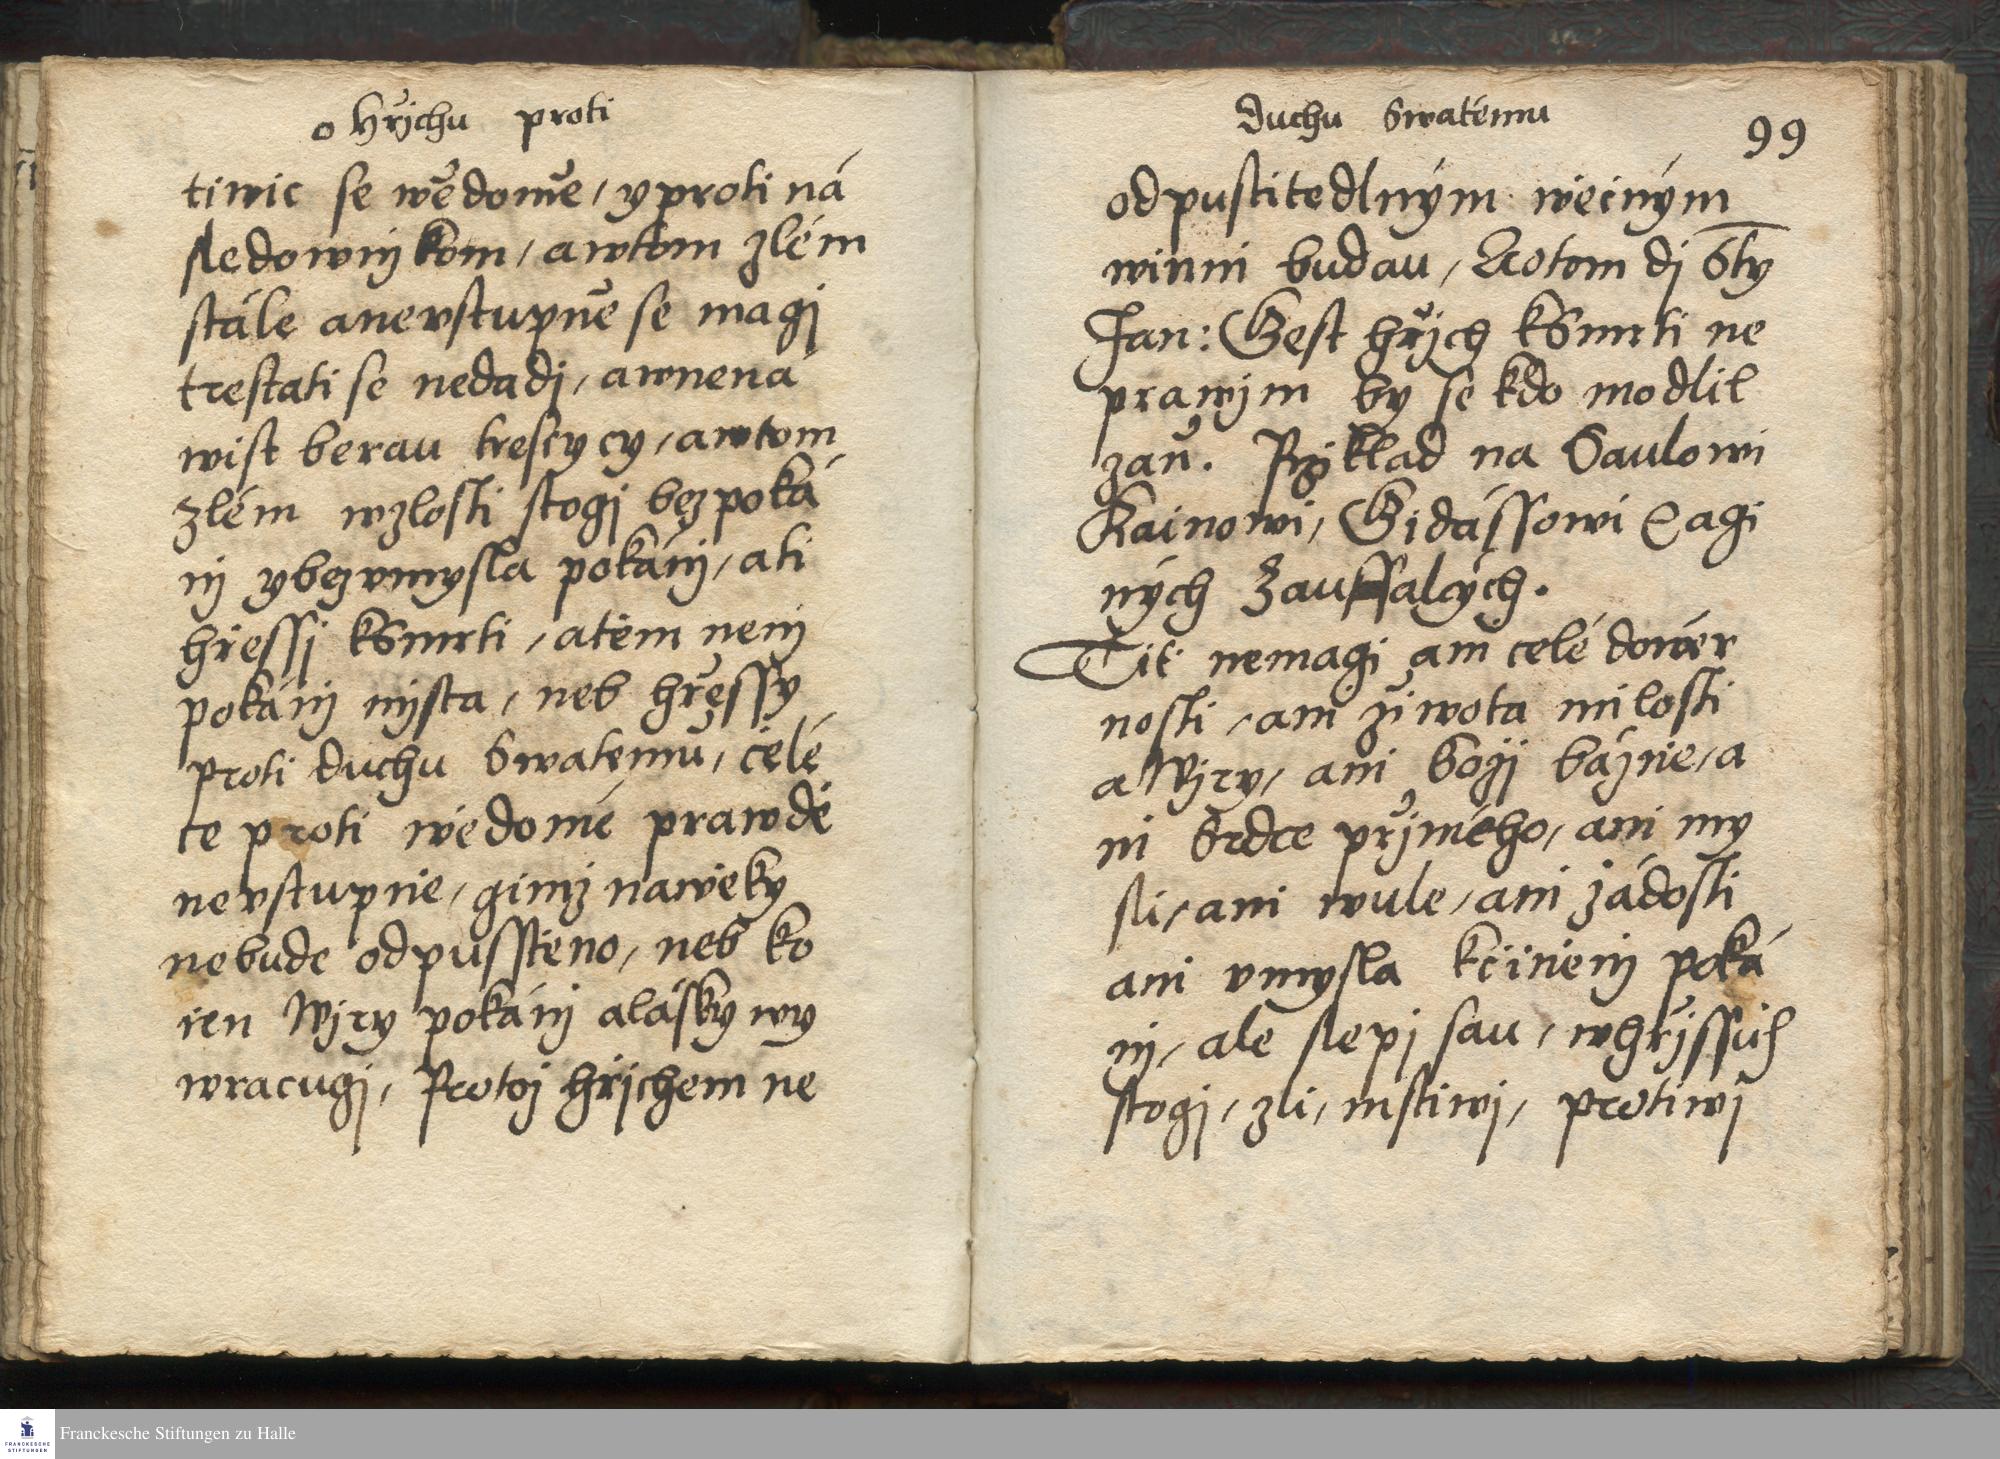 o Hřjchu proti
tiwic se wědomě, y proti ná
sledownjkom, awtom zlém
stále anevstupně se magj
trestati se nedadj, awnená
wist berau trescycy, awtom
zlém wzlosti stogj bez poká
nj y bez vmysla pokánj, ati
hřessj kSmrti, atěm nenj
pokánj mjsta, neb hřessy
proti Duchu Swatému, čelé
te proti wědomé prawdě
nevstupně, gimž nawěky
nebude odpusstěno, neb ko
řen Wjry pokánj alásky wy
wracugj, Protoj hřjchem ne
Duchu Swatému 99
odpustitedlným wěčným
winni budau, Aotom dj Sty
Jan: Gest hřjch kSmrti ne
prawjm by se kdo modlil
zaň. Přjklad na Saulowi
Kainowi, Gidássowi Aagi
ných Zaufalcých.
Tit nemagi ani celé dověr
nosti, ani žiwota milosti
a Wjry, ani Božj bázně, a
ni Srdce přjmého, ani my
sli, ani wule, ani žádosti
ani vmysla kčiněnj poká
nj, ale slepj sau, whřjssich
stogj, zli, mstiwj, protiwj
Franckesche Stiftungen zu Halle
FRANCKESCHE
STIFTUNGEN